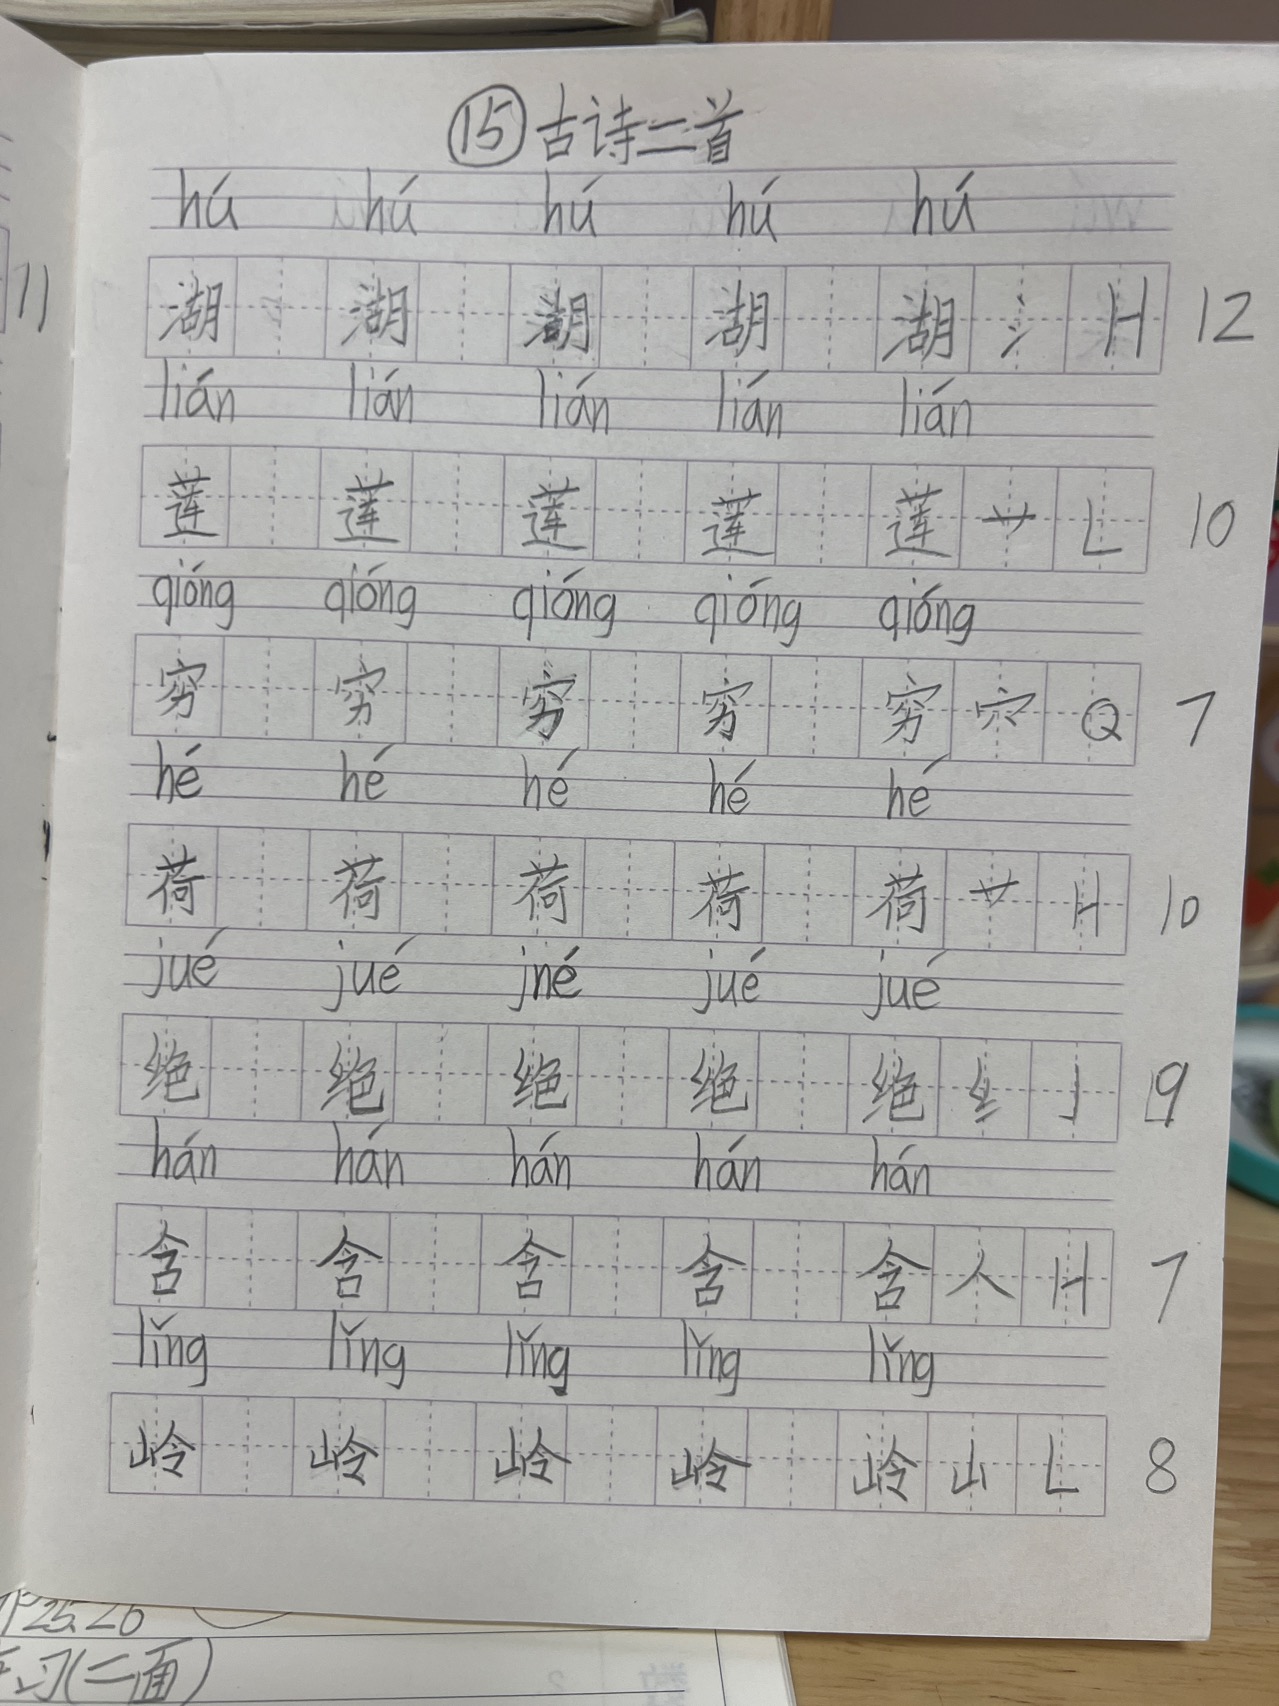 ⑮古诗二首
hú hú hú hú hú
11
湖 湖 湖 湖 湖 氵 H 12
lián lián lián lián lián
莲 莲 莲 莲 莲 艹 L 10
qióng qióng qióng qióng qióng
穷 穷 穷 穷 穷 穴 Q 7
hé hé hé hé hé
荷 荷 荷 荷 荷 艹 H 10
jué jué jné jué jué
绝 绝 绝 绝 绝 纟 J 9
hán hán hán hán hán
含 含 含 含 含 人 H 7
lǐng lǐng lǐng lǐng lǐng
岭 岭 岭 岭 岭 山 L 8
P25.26
习(二面)